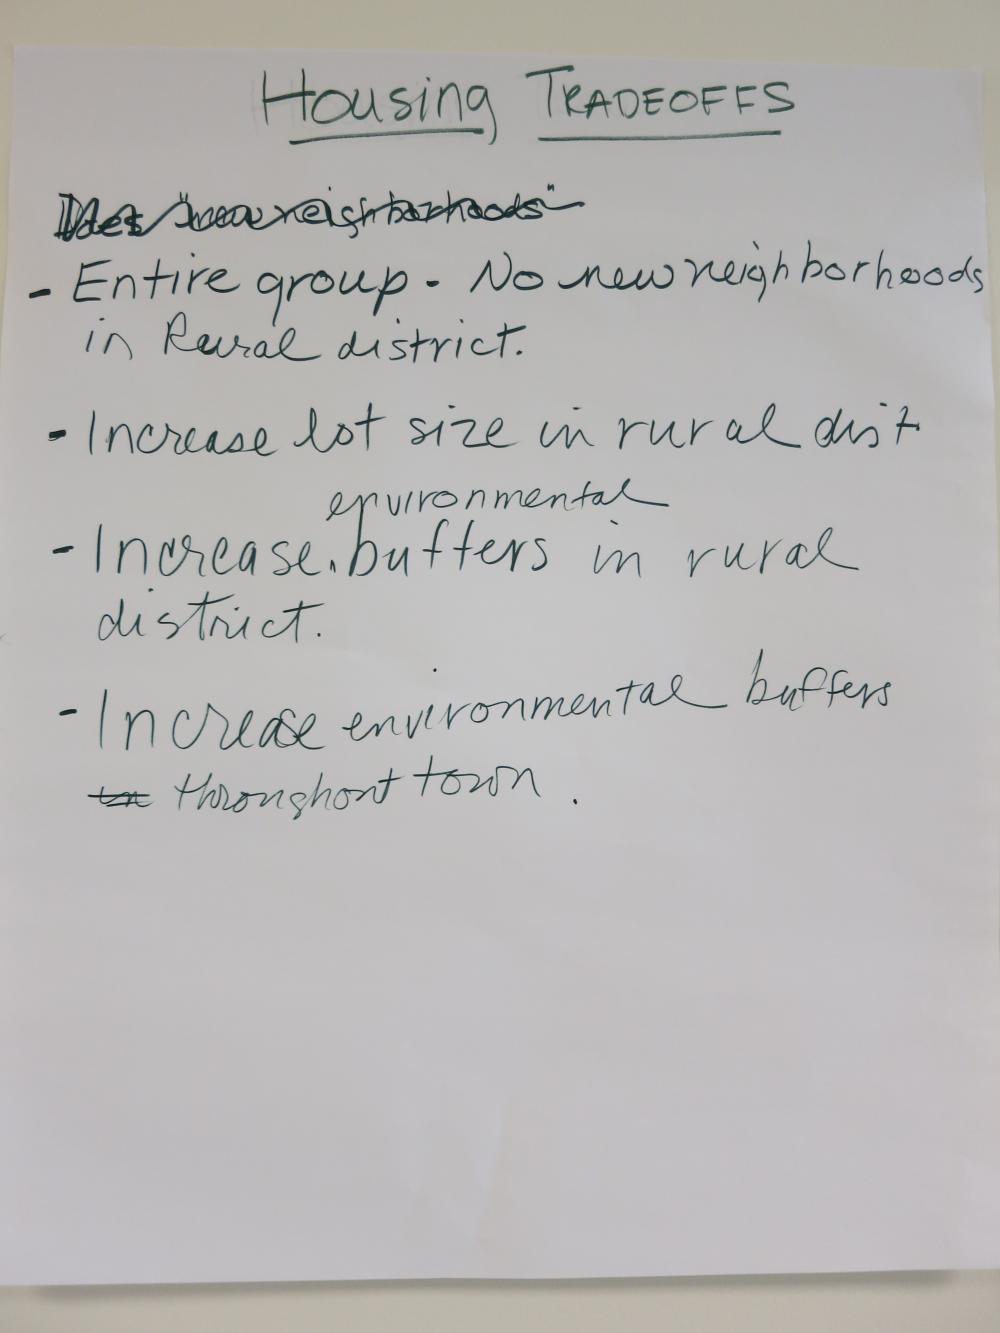 Housing TRADEOFFS
neighborhoods"
- Entire group - No new neighborhoods
in Rural district.
- Increase lot size in rural dist.
environmental
- Increase buffers in rural
district.
- Increase environmental buffers
in throughout town.